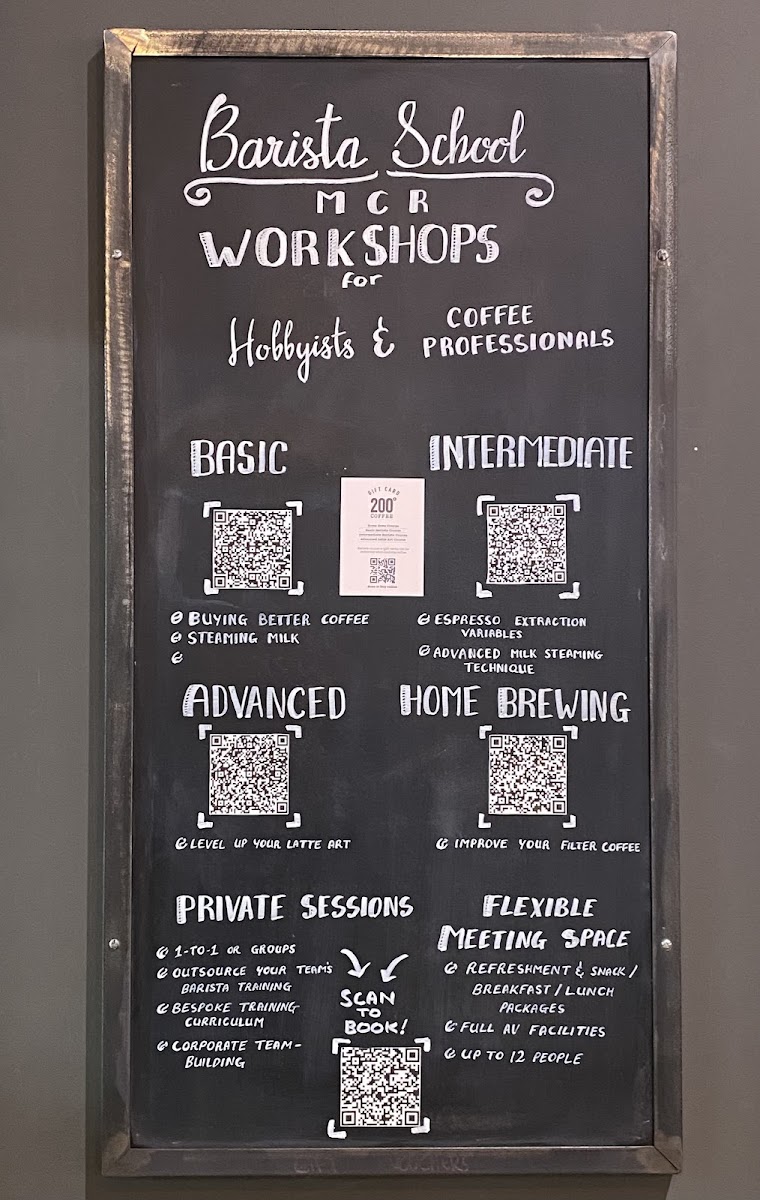 Barista School
MCR
WORKSHOPS
for
Hobbyists & COFFEE
PROFESSIONALS
BASIC
BUYING BETTER COFFEE
STEAMING MILK
GIFT CARD
200°
COFFEE
INTERMEDIATE
ESPRESSO EXTRACTION
VARIABLES
ADVANCED MILK STEAMING
TECHNIQUE
ADVANCED
LEVEL UP YOUR LATTE ART
HOME BREWING
IMPROVE YOUR FILTER COFFEE
PRIVATE SESSIONS
1-TO-1 OR GROUPS
OUTSOURCE YOUR TEAM'S
BARISTA TRAINING
BESPOKE TRAINING
CURRICULUM
CORPORATE TEAM-
BUILDING
SCAN
TO
BOOK!
FLEXIBLE
MEETING SPACE
REFRESHMENT & SNACK/
BREAKFAST/LUNCH
PACKAGES
FULL AV FACILITIES
UP TO 12 PEOPLE